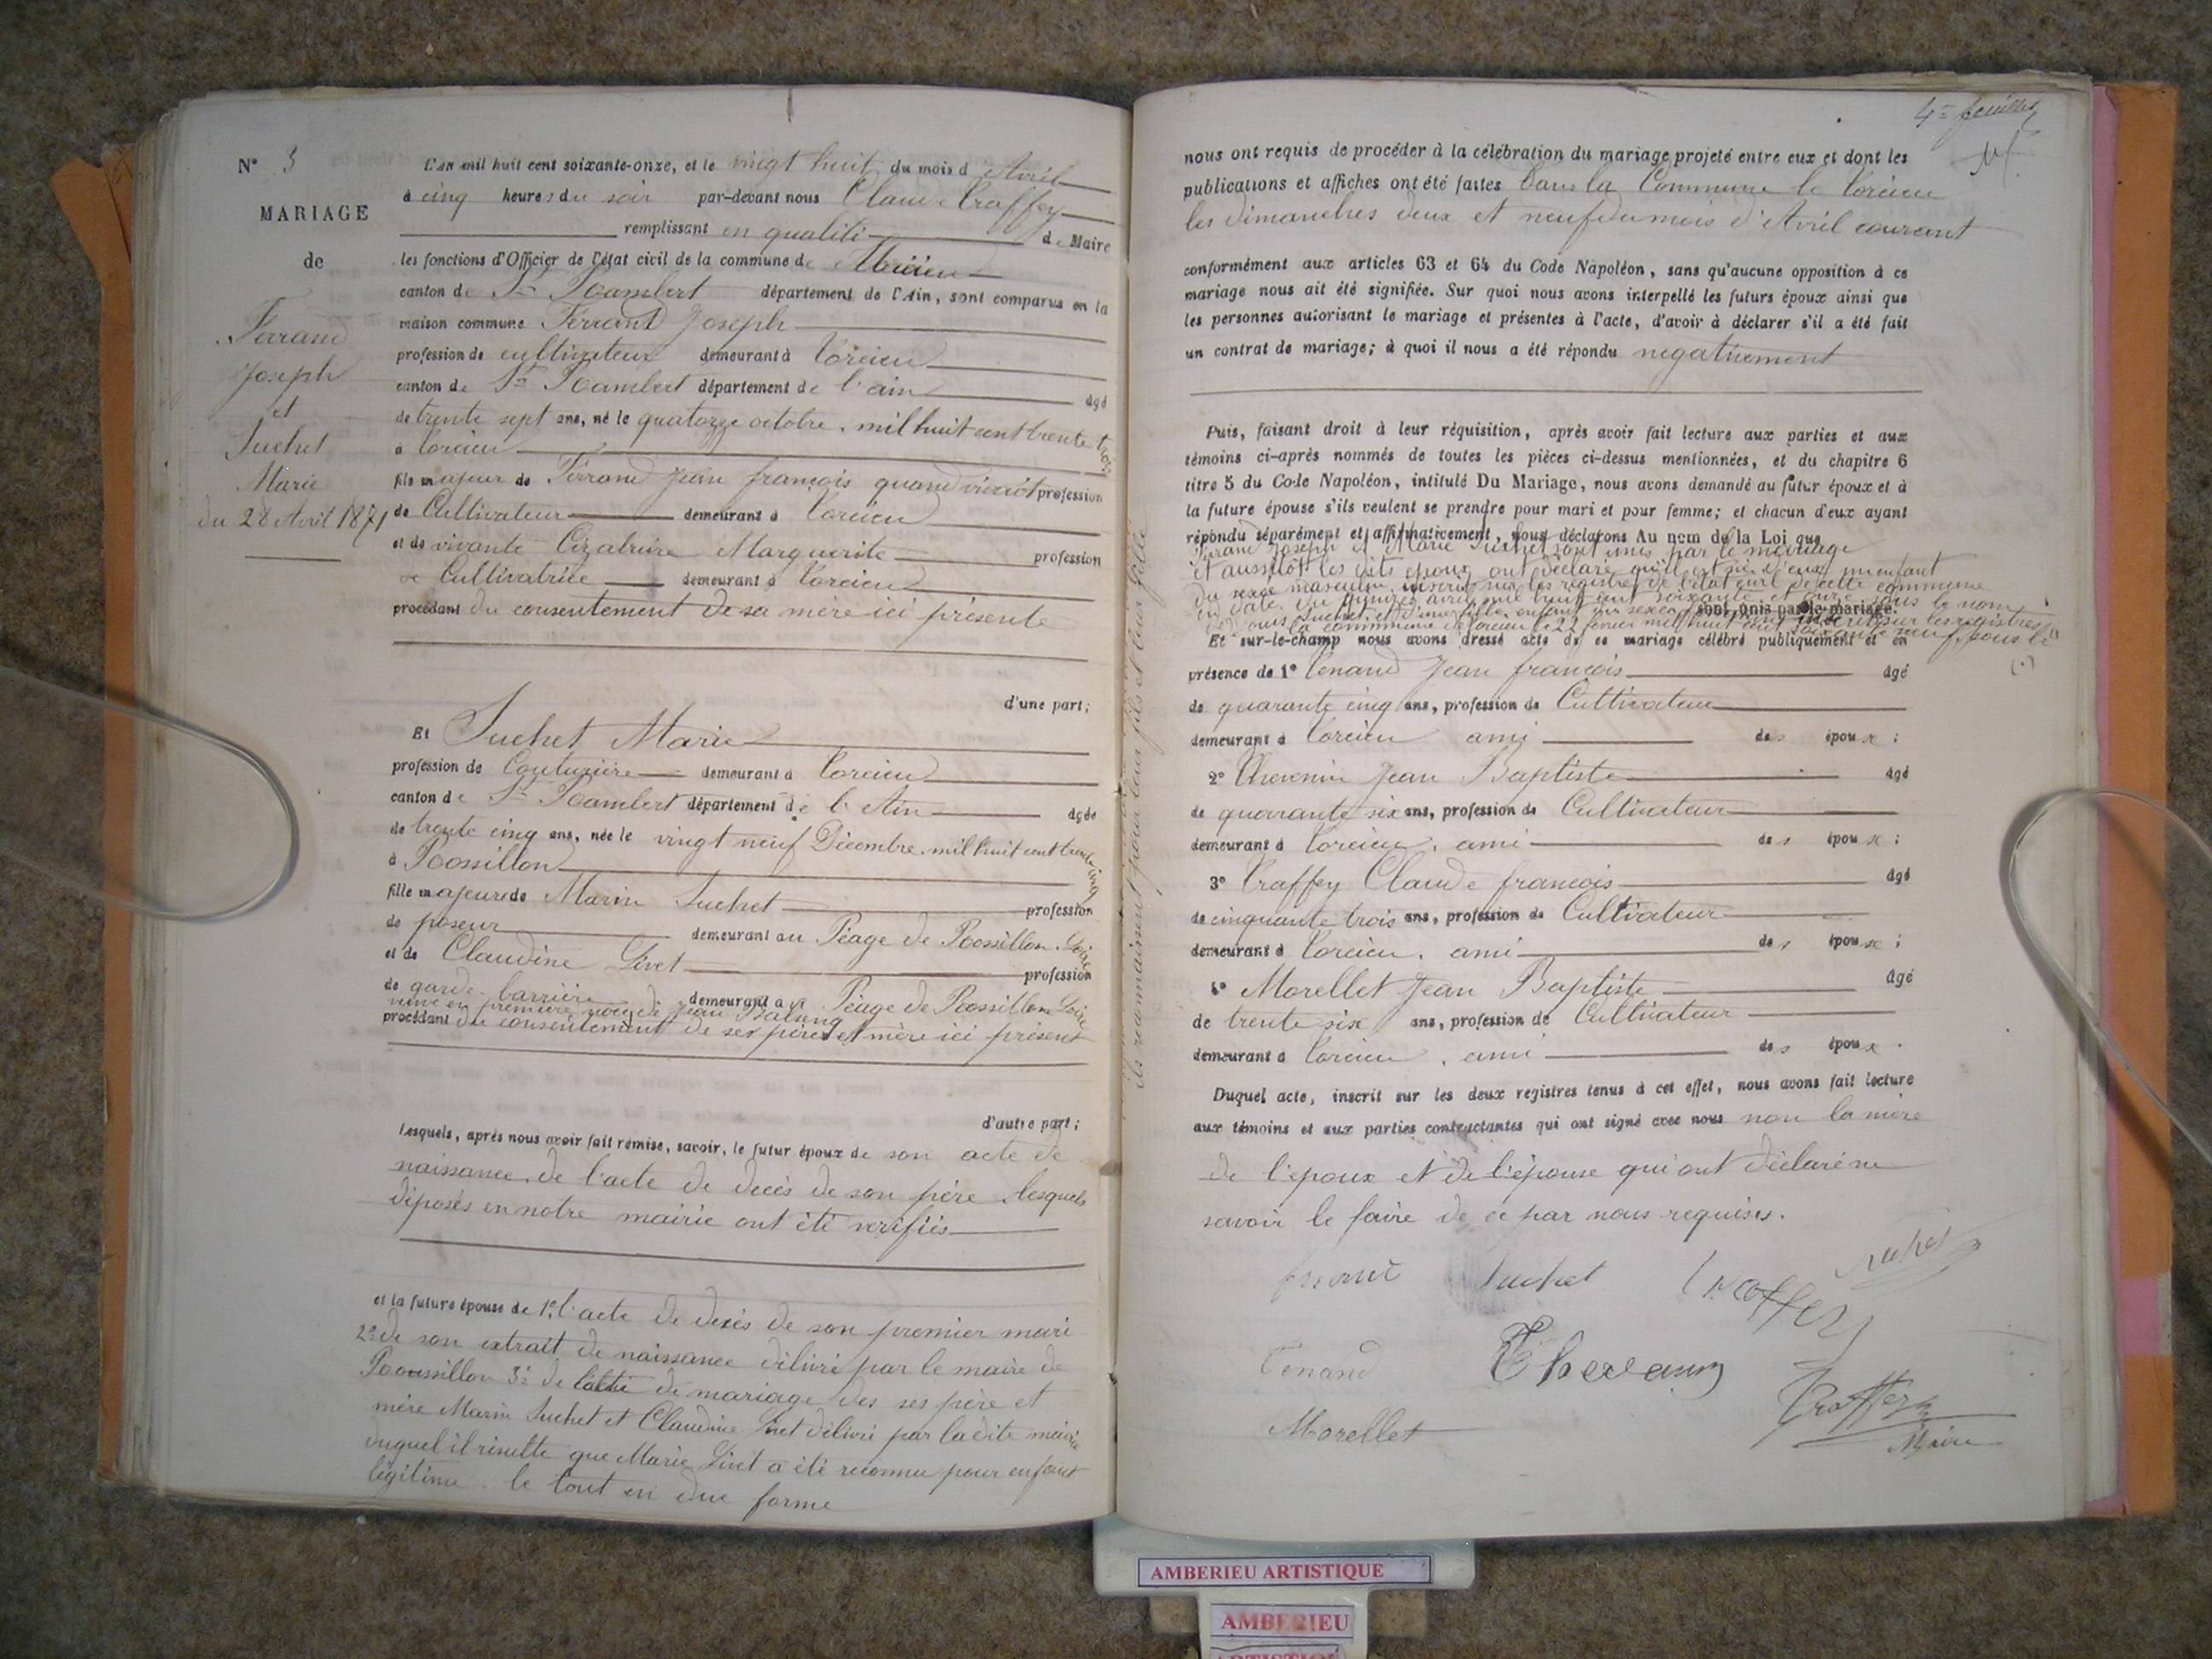 N° 3
MARIAGE
de
Ferrand
Joseph
et
Suchet
Marie
du 28 Avril 1871
L'an mil huit cent soixante-onze, et le vingt huit du mois d Avril
à cinq heures du soir par-devant nous Claude Traffey
remplissant en qualité de Maire
les fonctions d'Officier de l'état civil de la commune de Torcieu
canton de St Rambert département de l'Ain, sont comparus en la
maison commune Ferrand Joseph
profession de cultivateur demeurant à Torcieu
canton de St Rambert département de l'ain âgé
de trente sept ans, né le quatorze octobre mil huit cent trente trois
à Torcieu
fils majeur de Ferrand Jean françois quand vivait profession
de Cultivateur demeurant à Torcieu
et de vivante Marguerite profession
de Cultivatrice demeurant à Torcieu
procédant du consentement de sa mère ici présente
d'une part;
Et Suchet Marie
profession de Couturière demeurant à Torcieu
canton de St Rambert département de l'Ain âgée
de trente cinq ans, née le vingt neuf Décembre mil huit cent trente cinq
à Rossillon
fille majeure de Marin Suchet profession
de poseur demeurant au Péage de Rossillon
et de Claudine Livet profession
de garde-barrière demeurant au Péage de Rossillon
veuve en première noce de Jean
procédant du consentement de ses père et mère ici présent
d'autre part;
Lesquels, après nous avoir fait remise, savoir, le futur époux de son acte de
naissance, de l'acte de décès de son père lesquels
déposés en notre mairie ont été verifiés
et la future épouse de 1° l'acte de décès de son premier mari
2° de son extrait de naissance délivré par le maire de
Roussillon 3° de l'acte de mariage des ses père et
mère Marin Suchet et Claudine Livet délivré par la dite mairie
duquel il résulte que Marie Livet a été reconnue pour enfant
légitime. le tout en due forme
ils reconnaissent pour leur fils et leur fille
4e feuillet
nous ont requis de procéder à la célébration du mariage projeté entre eux et dont les
publications et affiches ont été faites dans la Commune de Torcieu
les dimanches deux et neuf du mois d'Avril courant
conformément aux articles 63 et 64 du Code Napoléon, sans qu'aucune opposition à ce
mariage nous ait été signifiée. Sur quoi nous avons interpellé les futurs époux ainsi que
les personnes autorisant le mariage et présentes à l'acte, d'avoir à déclarer s'il a été fait
un contrat de mariage; à quoi il nous a été répondu negativement
Puis, faisant droit à leur réquisition, après avoir fait lecture aux parties et aux
témoins ci-après nommés de toutes les pièces ci-dessus mentionnées, et du chapitre 6
titre 5 du Code Napoléon, intitulé Du Mariage, nous avons demandé au futur époux et à
la future épouse s'ils veulent se prendre pour mari et pour femme; et chacun d'eux ayant
répondu séparément et affirmativement, nous déclarons Au nom de la Loi que
Ferrand Joseph et Marie Suchet sont unis par le mariage
et aussitôt les dits epoux ont déclaré qu'il est né d'eux un enfant
du sexe masculin inscrit sur les registres de l'état civil de cette commune
en date du avril mil huit cent soixante et onze sous le nom
sont unis par le mariage.
Et sur-le-champ nous avons dressé acte de ce mariage célébré publiquement et en
présence de 1° Tenand Jean françois âgé
de quarante cinq ans, profession de Cultivateur
demeurant à Torcieu ami des époux;
2° Thevenin Jean Baptiste âgé
de quarante six ans, profession de Cultivateur
demeurant à Torcieu, ami des époux;
3° Traffey Claude françois âgé
de cinquante trois ans, profession de Cultivateur
demeurant à Torcieu, ami des époux;
4° Morellet Jean Baptiste âgé
de trente six ans, profession de Cultivateur
demeurant à Torcieu, ami des époux.
Duquel acte, inscrit sur les deux registres tenus à cet effet, nous avons fait lecture
aux témoins et aux parties contractantes qui ont signé avec nous non la mère
de l'époux et de l'épouse qui ont déclaré ne
savoir le faire de ce par nous requises.
Suchet Traffey Suchet
Tenand
Traffey
Morellet Maire
AMBERIEU ARTISTIQUE
AMBERIEU
ARTISTIQUE